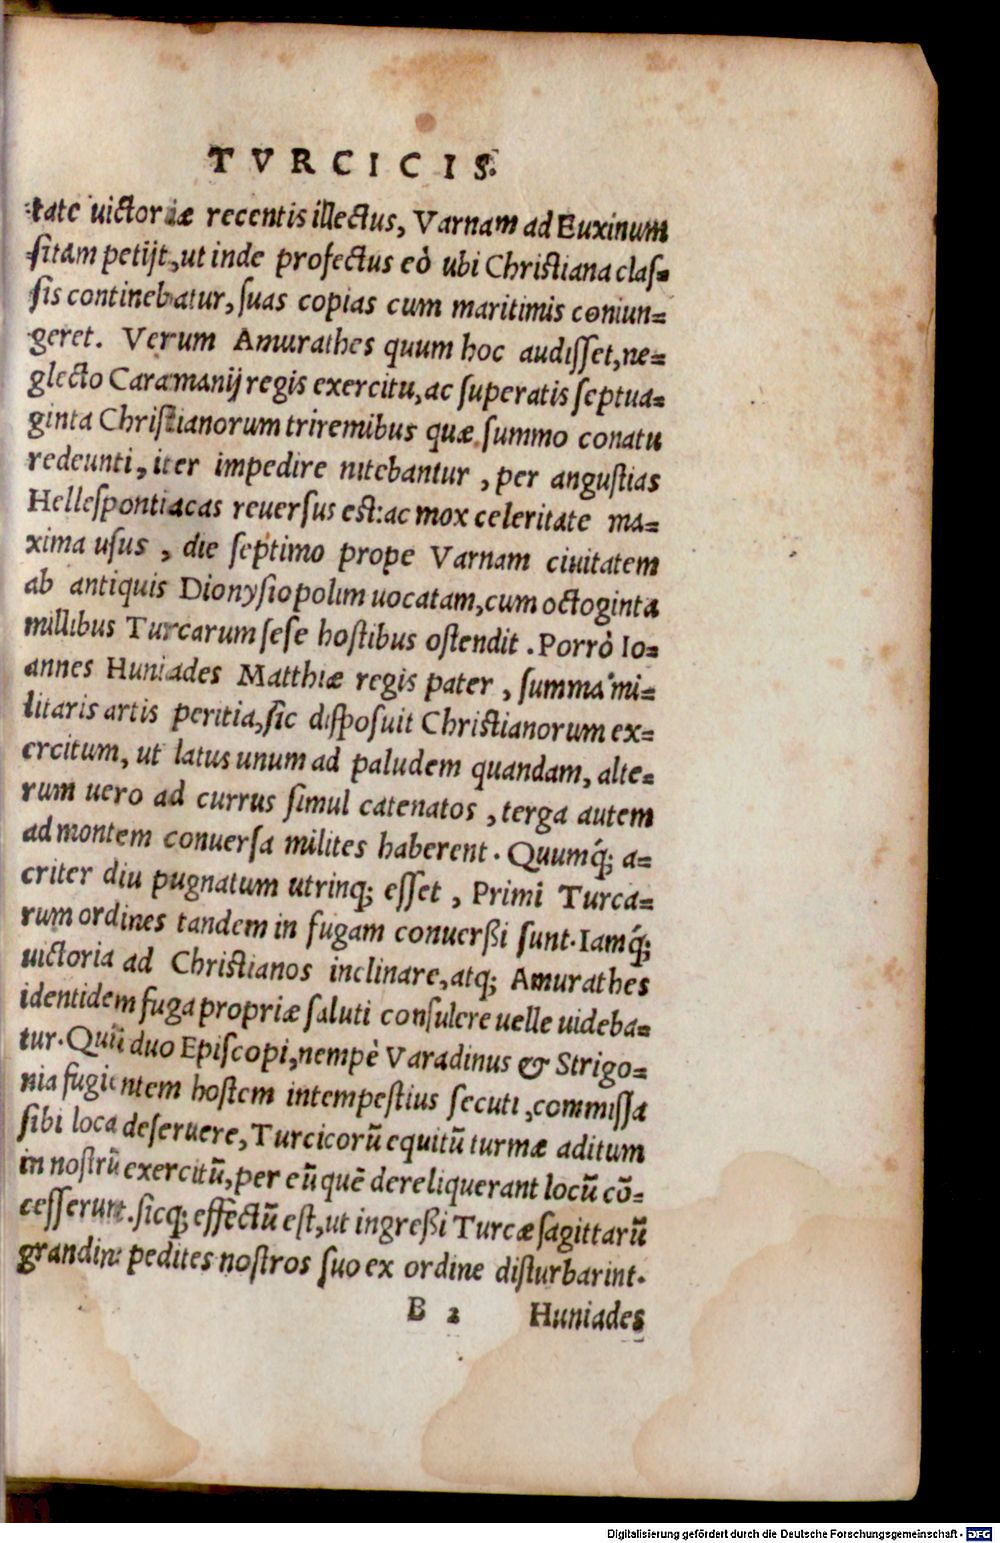 TVRCICIS.
tate uictoriæ recentis illectus, Varnam ad Euxinum
ſitam petijt, ut inde profectus eò ubi Chriſtiana claſ-
ſis continebatur, ſuas copias cum maritimis coniun-
geret. Verum Amurathes quum hoc audiſſet, ne-
glecto Caramanij regis exercitu, ac ſuperatis ſeptua-
ginta Chriſtianorum triremibus quæ ſummo conatu
redeunti, iter impedire nitebantur, per anguſtias
Helleſpontiacas reuerſus eſt: ac mox celeritate ma-
xima uſus, die ſeptimo prope Varnam ciuitatem
ab antiquis Dionyſiopolim uocatam, cum octoginta
millibus Turcarum ſeſe hoſtibus oſtendit. Porrò Io-
annes Huniades Matthiæ regis pater, ſumma mi-
litaris artis peritia, ſic diſpoſuit Chriſtianorum ex-
ercitum, ut latus unum ad paludem quandam, alte-
rum uero ad currus ſimul catenatos, terga autem
ad montem conuerſa milites haberent. Quumq́; a-
criter diu pugnatum utrinq; eſſet, Primi Turca-
rum ordines tandem in fugam conuerßi ſunt. Iamq́;
uictoria ad Chriſtianos inclinare, atq; Amurathes
identidem fuga propriæ ſaluti conſulere uelle uideba-
tur. Quũ duo Epiſcopi, nempè Varadinus & Strigo-
nia fugientem hoſtem intempeſtius ſecuti, commiſſa
ſibi loca deſeruere, Turcicorũ equitũ turmæ aditum
in noſtrũ exercitũ, per eũ quẽ dereliquerant locũ cõ-
ceſſerunt. ſicq; effectũ eſt, ut ingreßi Turcæ ſagittarũ
grandine pedites noſtros ſuo ex ordine diſturbarint.
B 2 Huniades
Digitalisierung gefördert durch die Deutsche Forschungsgemeinschaft - DFG